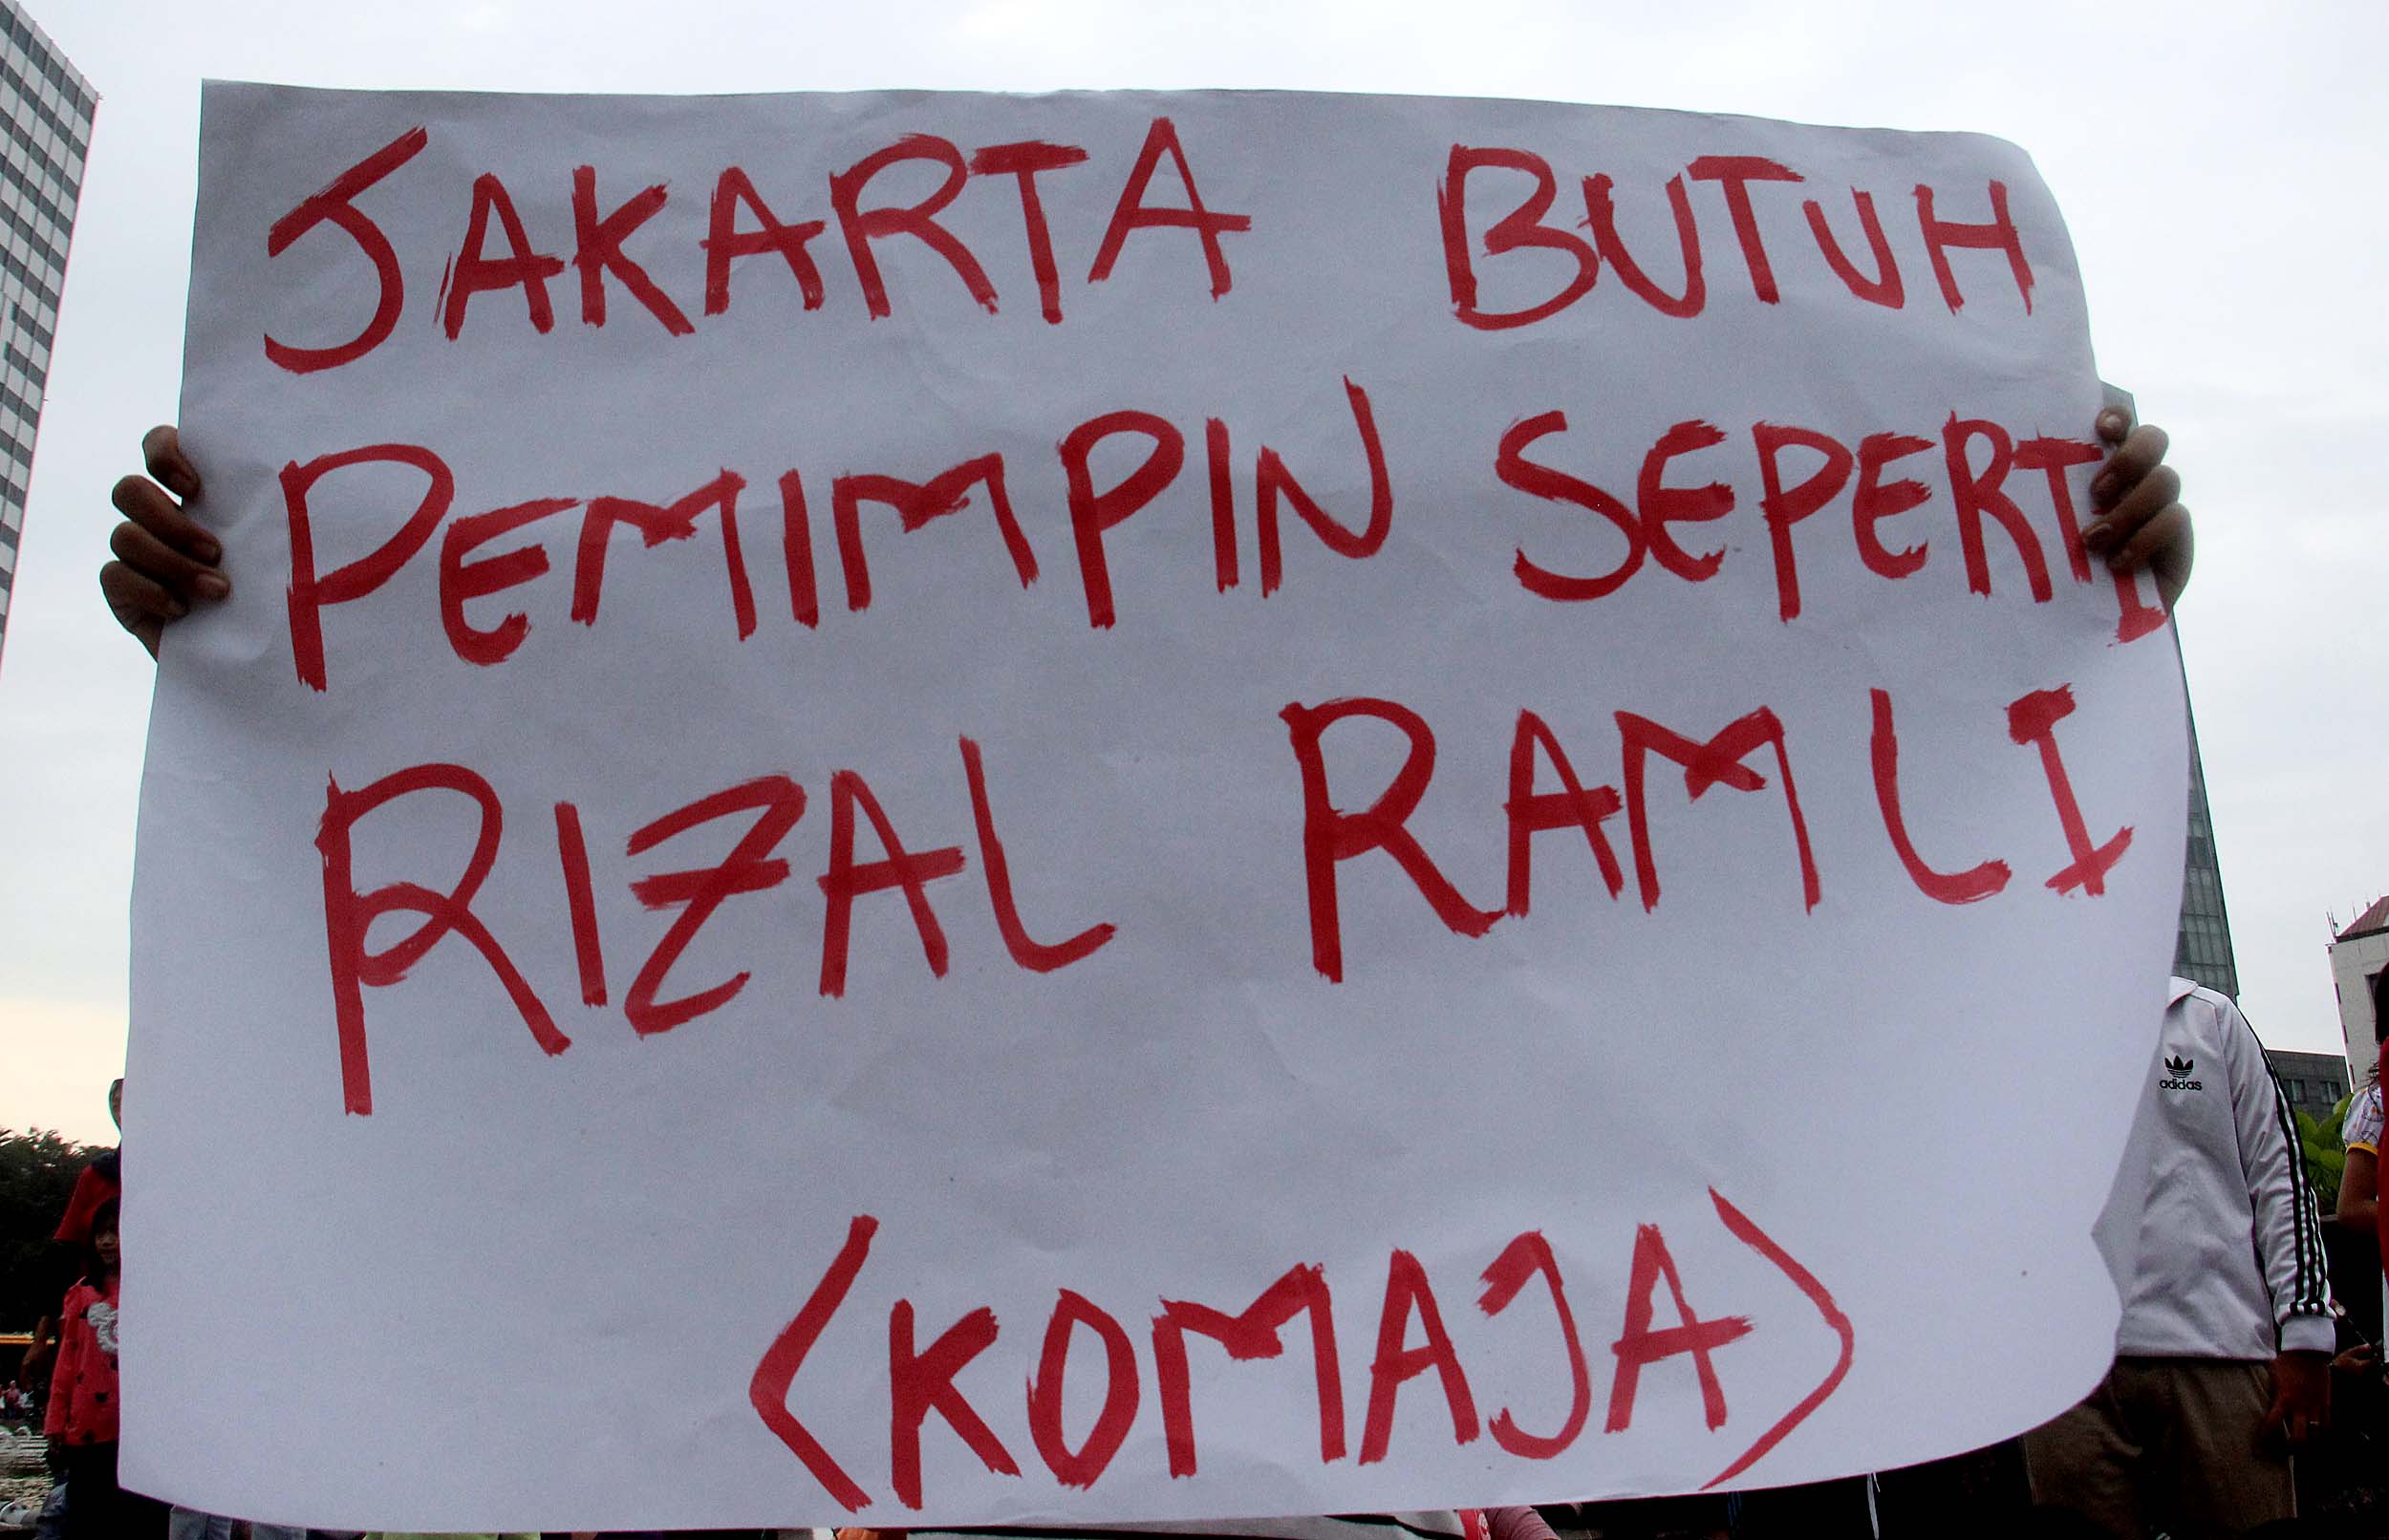 JAKARTA BUTUH
PEMIMPIN SEPERTI
RIZAL RAMLI
(KOMAJA)
adidas